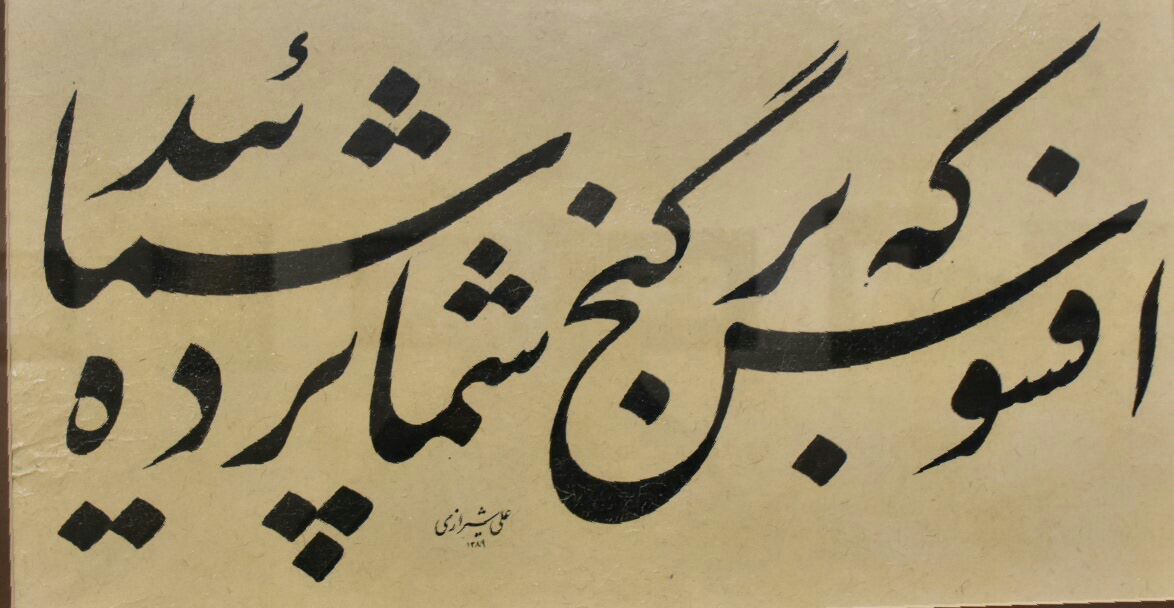 افسوس که بر گنج شما پرده شمائید
علی شیرازی
۱۳۸۹